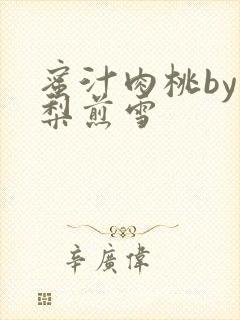 蜜汁肉桃by
梨煎雪
辛廣偉